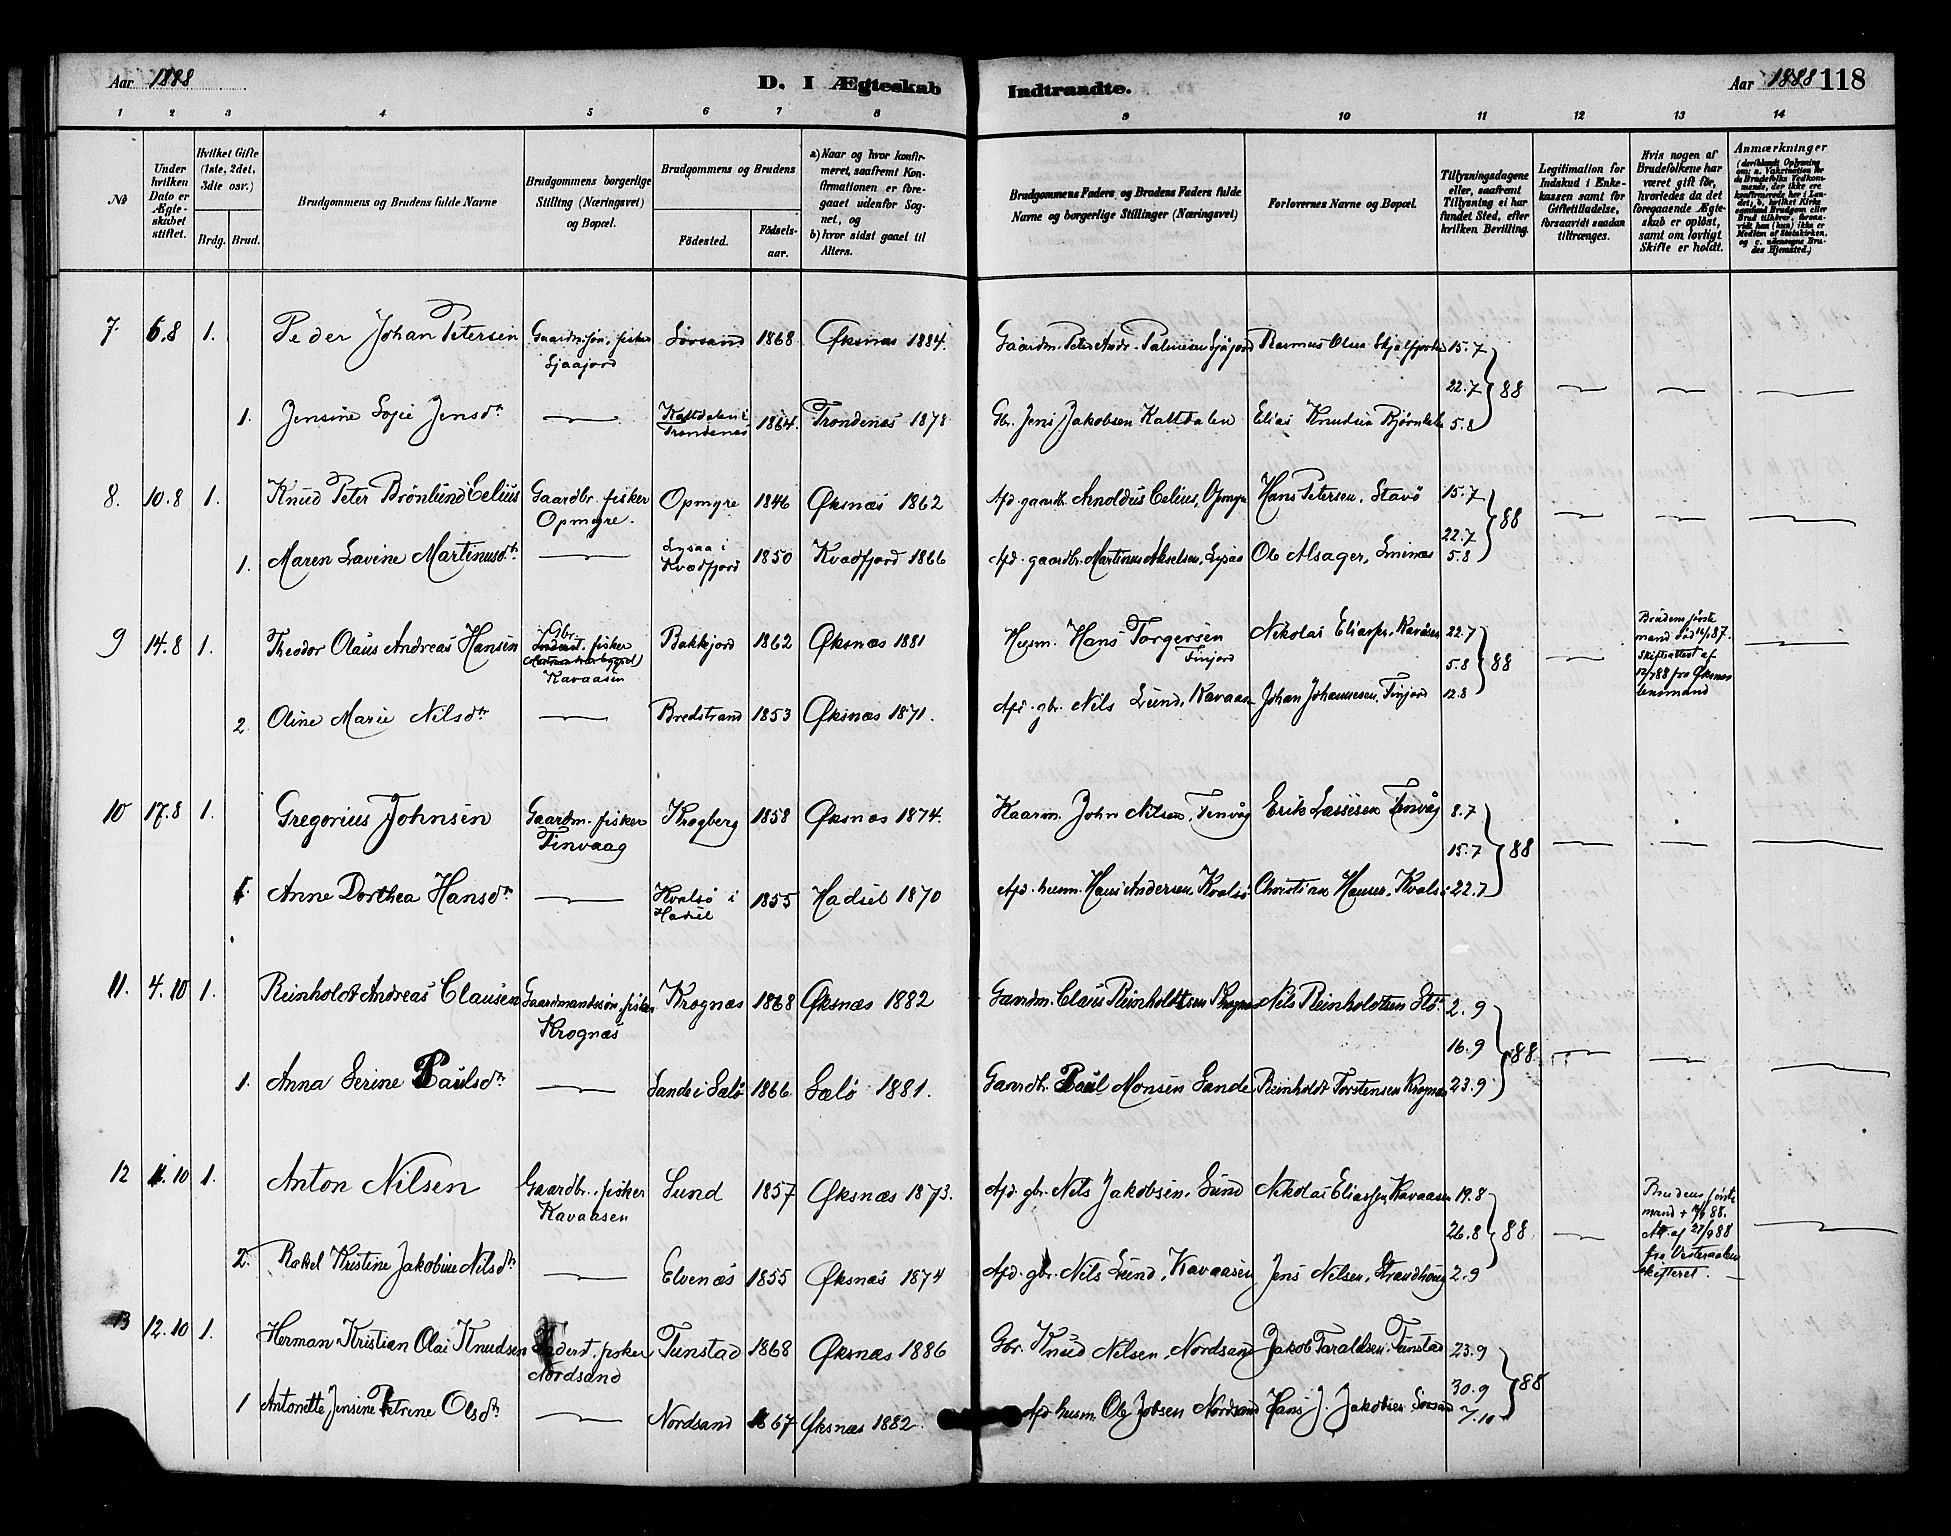 Aar 1888
D. I Ægteskab Indtraadte.
Aar 1888 118
1 2 3 4 5 6 7 8 9 10 11 12 13 14
No
Under hvilken Dato er Ægteskabet stiftet.
Hvilket Gifte (1ste, 2det, 3die osv.)
Brdg. Brud.
Brudgommens og Brudens fulde Navne
Brudgommens borgerlige Stilling (Næringsvei) og Bopæl.
Brudgommens og Brudens
Födested.
Födselsaar.
a) Naar og hvor konfirmeret, saafremt Konfirmationen er foregaaet udenfor Sognet, og
b) hvor sidst gaaet til Alters.
Brudgommens Faders og Brudens Faders fulde Navne og borgerlige Stillinger (Næringsvei)
Forlovernes Navne og Bopæl.
Tillysningsdagene eller, saafremt Tillysning ei har fundet Sted, efter hvilken Bevilling.
Legitimation for Indskud i Enkekassen samt for Giftetilladelse, forsaavidt saadan tiltrænges.
Hvis nogen af Brudefolkene har været gift för, hvorledes da det foregaaende Ægteskab er oplöst, samt om lovligt Skifte er holdt.
Anmærkninger
7. 6.8 1. Peder Johan Petersen Gaardm.søn, fisker Sjaajord Sörsand 1868 Øksnæs 1884. Gaardm. Peter Andr. Sjåjord Rasmus Olsen 15.7
22.7 } 88
1. Jensine Sofie Jensdtr Kaltdalen i Trondenæs 1864. Trondenæs 1878 Gbr. Jens Jakobsen Kaltdalen Elias Knudsen 5.8
8. 10.8 1. Knud Peter Brönlund Celius Gaardbr. fisker Opmyre. Opmyre 1846 Øksnæs 1862 Afd. gaardb. Arnoldus Celius, Opmyre Hans Petersen, Stavö 15.7
22.7 } 88
1. Maren Lavine Martinusdtr Lysaa i Kvædfjord 1850 Kvædfjord 1866 Afd. gaardbr. Martinus Akselsen, Lysaa Ole Alsager, Sminæs 5.8
9 14.8 1. Theodor Olaus Andreas Hansen Gbr. fisker Kavaasen Bakkjord 1862 Øksnæs 1881 Husm. Hans Torgersen Finjord Nikolai Eliass., Kavåsen 22.7
5.8 } 88
Brudens første mand död 14/87. Skifteattest af 12/7 88 fra Øksnæs lensmand
2. Oline Marie Nilsdtr Bredstrand 1853 Øksnæs 1871. Afd. gbr. Nils Lund, Kavaasen Johan Johannesen, Finjord 12.8
10 17.8 1. Gregorius Johnsen Gaardm. fisker Tinvaag Krogberg 1858 Øksnæs 1874. Kaarm. John Nilsen, Tinvåg Erik Lassesen Tinvåg 8.7
15.7 } 88
1. Anne Dorthea Hansdtr Kvalsö i Hadsel 1855 Hadsel 1870 Afd. husm. Hans Andersen, Kvalsö Christian Hansen, Kvalsö 22.7
11. 4.10 1. Reinholdt Andreas Clausen Gaardmandssön, fisker Krognæs Krognæs 1868 Øksnæs 1882 Gaardm. Claus Reinholdtsen Krognæs Nils Reinholdtsen Stö. 2.9
16.9 } 88
1. Anna Serine Paulsdtr Sande i Sælö 1866 Sælö 1881. Gaardbr. Paul Monsen Sande Reinholdt Torstensen Krognæs 23.9
12 11.10 1. Anton Nilsen Gaardbr. fisker Kavaasen Sund 1857 Øksnæs 1873. Afd. gbr. Nils Jakobsen, Sund Nikolai Eliassen, Kavaasen 19.8
26.8 } 88
Brudens første mand + 88. Att. af 27/9 88 fra Vesteraalens skifteret.
2. Rakel Kristine Jakobine Nilsdtr Elvenæs 1855 Øksnæs 1874 Afd. gbr. Nils Lund, Kavaasen Jens Nilsen, Strandhaug 2.9
13 12.10 1. Herman Kristian Olai Knudsen Inderst, fisker Nordsand Tunstad 1868 Øksnæs 1886 Gbr. Knud Nilsen, Nordsand Jakob Taraldsen, Tunstad 23.9
30.9 } 88
1 Antonette Jensine Petrine Olsdtr Nordsand 1867 Øksnæs 1882 Afd. husm. Ole Jobsen Nordsand Hans J. Jakobsen Sörsand 7.10